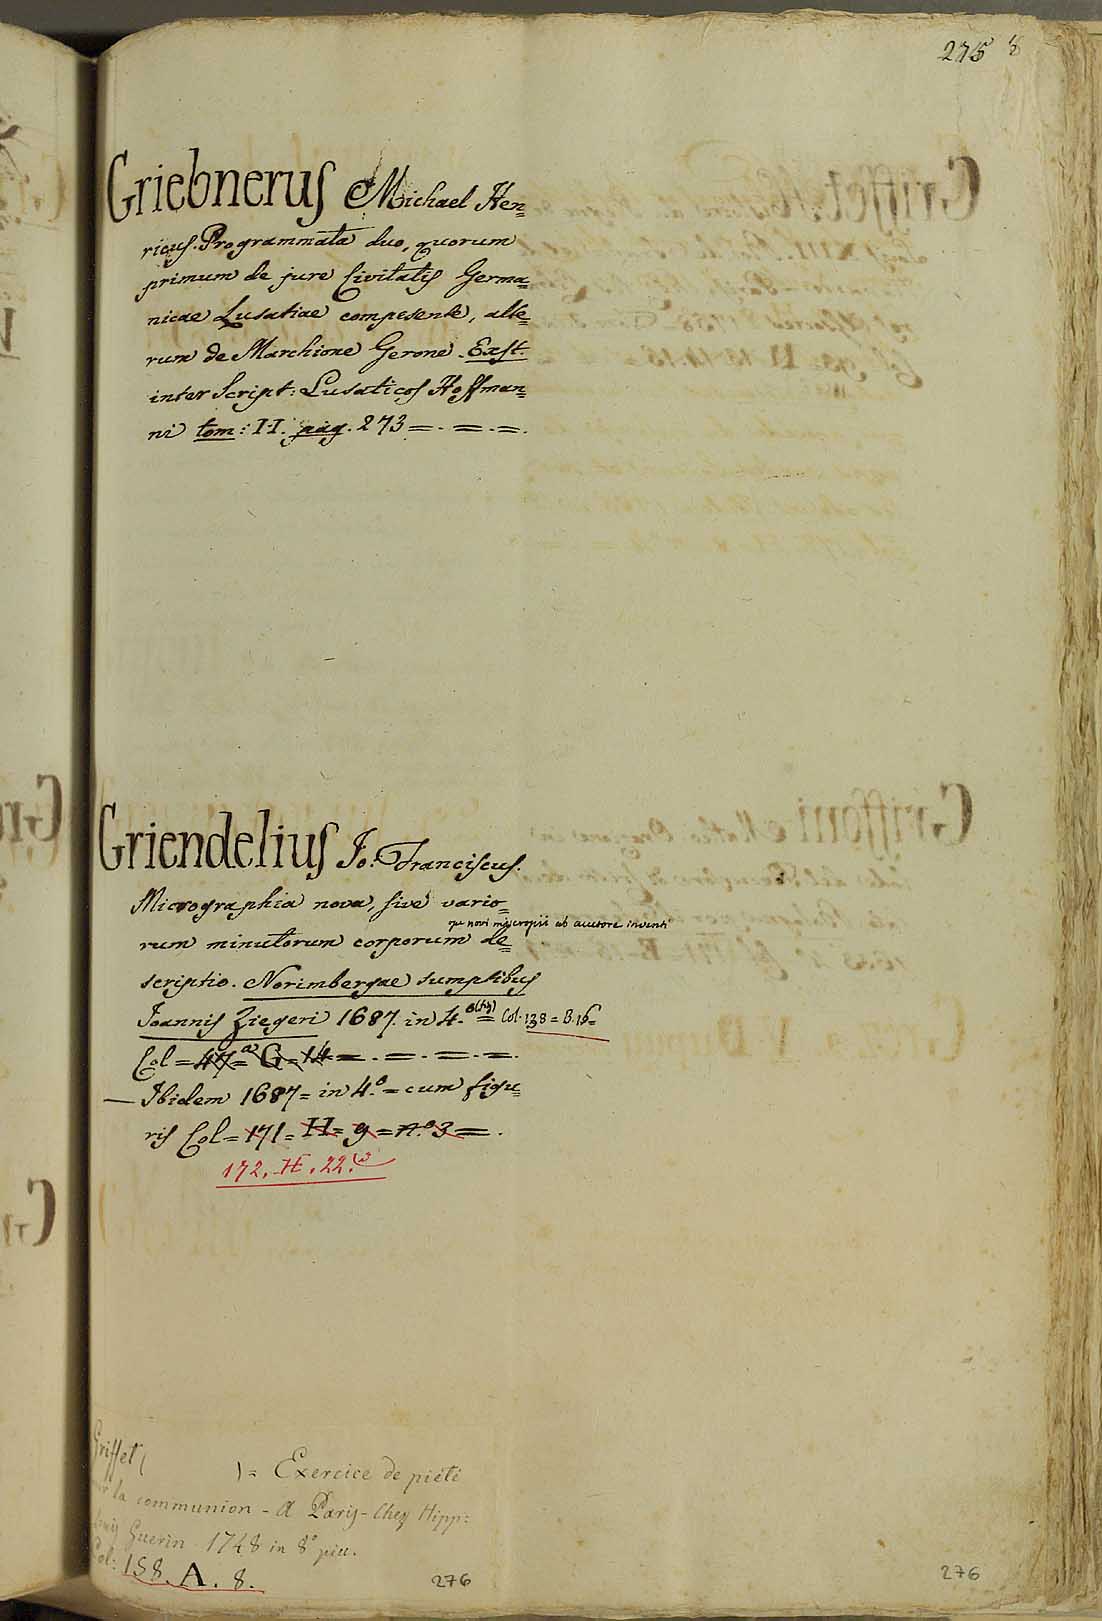 275
Griebnerus Michael Hen=
ricus. Programmata duo, quorum
primum de jure Civitatis Germa=
nicae Lusatiae competente, alte=
rum de Marchione Gerone. Exst.
inter Script: Lusaticos Hoffman=
ni tom: II. pag. 273 =. =. =.
Griendelius Jo: Franciscus.
Micrographia nova, sive vario=
rum minutorum corporum de=
ope novi miscropii ab auctore inventi
scriptio. Norimbergae sumptibus
Joannis Ziegeri 1687. in 4.º (fig) = Col. 138 = B. 16=
Col = 47 = G = 14 =. =. =. =.
— Ibidem 1687 = in 4.º = cum figu=
ris Col = 171 = H = g = N.º 3 =.
172. H. 22.
Griffet (
) = Exercice de piété
la communion - A Paris - Chez Hipp:
Louis Guerin 1748 in 8º picc.
Col: 158. A. 8.
276
276